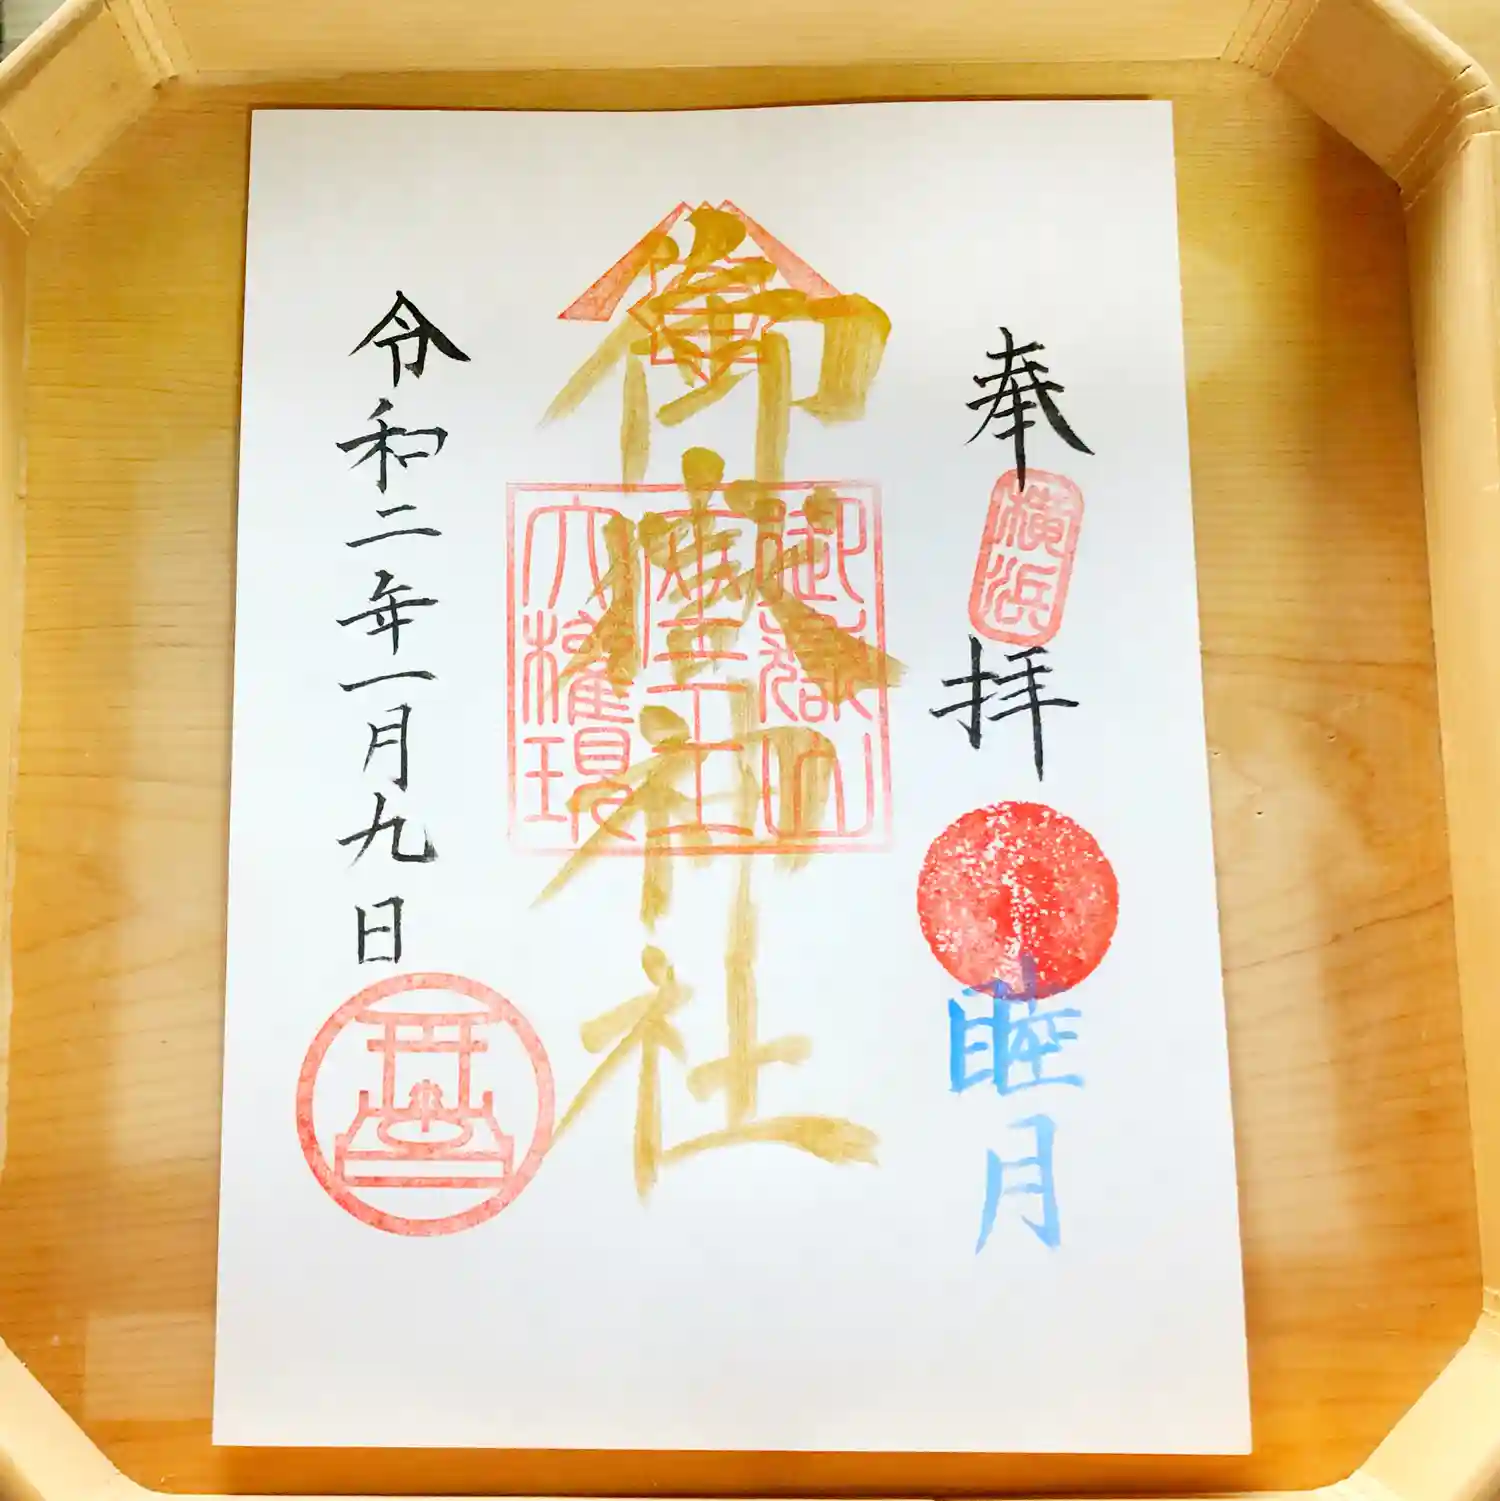 奉拝
横浜
睦月
御嶽神社
御嶽山
座王
大權現
令和二年一月九日